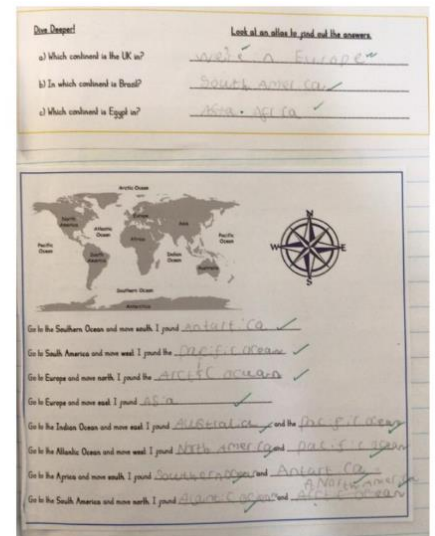 Dive Deeper! Look at an atlas to find out the answers.
a) Which continent is the UK in? Europe
b) In which continent is Brazil? South America
c) Which continent is Egypt in? Asia. Africa
Arctic Ocean
North America
Europe
Asia
Atlantic Ocean
Pacific Ocean
Africa
Pacific Ocean
South America
Indian Ocean
Australia
Southern Ocean
Antarctica
N
W E
S
Go to the Southern Ocean and move south. I found Antartica
Go to South America and move west. I found the Pacific ocean
Go to Europe and move north. I found the Arctic ocean
Go to Europe and move east. I found Asia
Go to the Indian Ocean and move east. I found Australia and the Pacific ocean
Go to the Atlantic Ocean and move west. I found North America and Pacific ocean
Go to the Africa and move south. I found Southern ocean and Antartica
North America
Go to the South America and move north. I found ocean and Arctic ocean